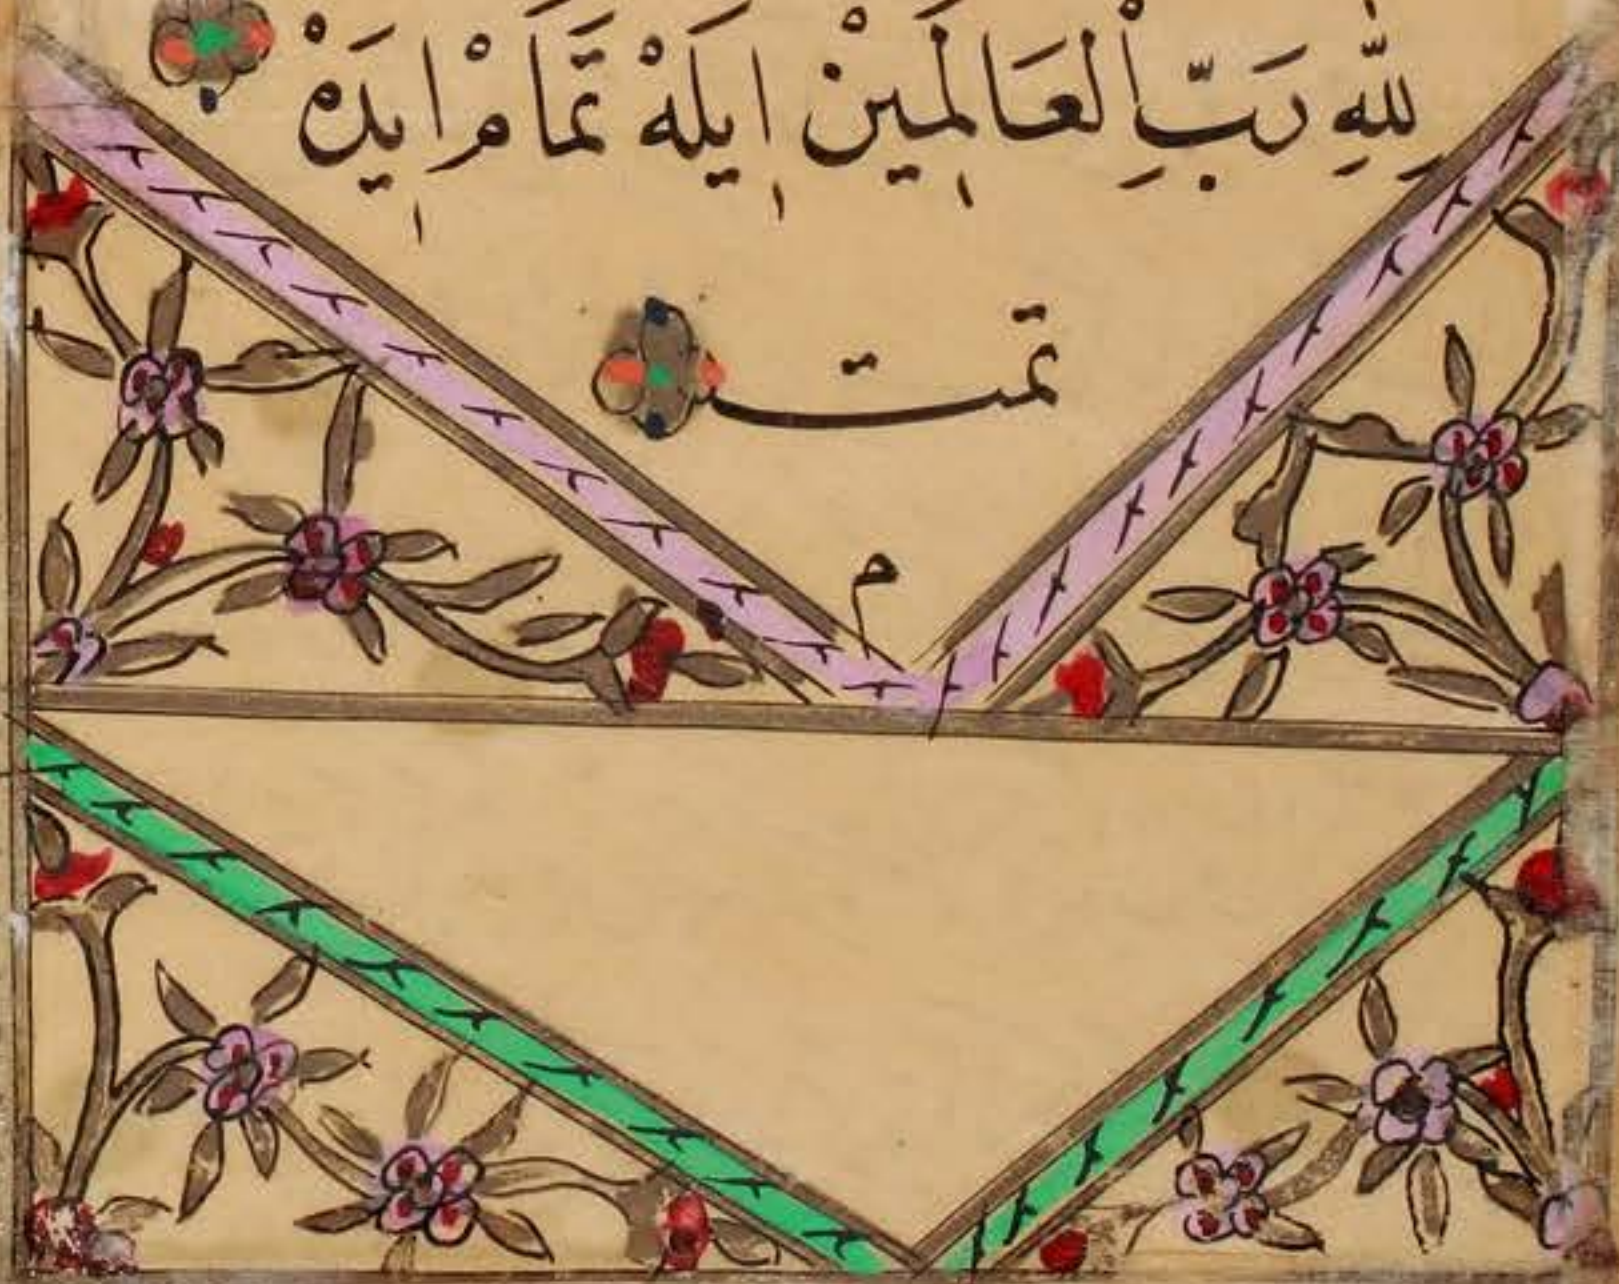 لِلّٰهِ رَبِّ الْعَالَمِينْ اِيلَهْ تَمَامْ اِيدَهْ
تمت
م